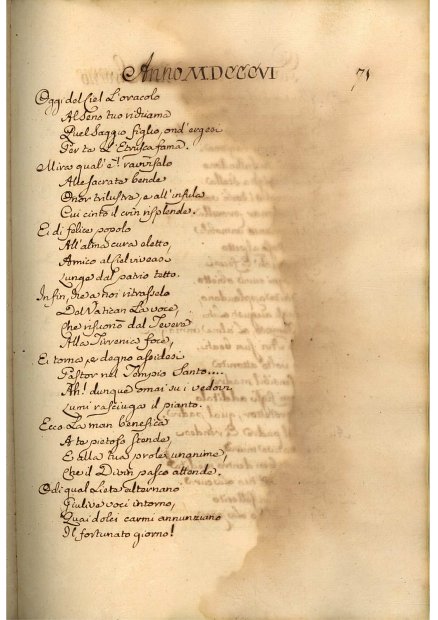 Anno MDCCCVI
71
Oggi del Ciel L'oracolo
Al Seno tuo richiama
Quel Saggio figlio, ond'ergesi
Per te d'Etrusca fama.
Mira qual'è! ravvisalo
Alle sacrate bende
Onor trilustre, e all'infula
Cui cinto il crin risplende.
Ei di felice popolo
All'alma cura eletto,
Amico al Ciel viveasi
Lunge dal patrio tetto.
Infin, che a noi ritrasselo
Del Vatican La voce,
Che risuonò dal Tevere
Alla Tirrenica foce,
Ei torna, e degno assidesi
Pastor nel Tempio Santo....
Ah! dunque omai su i vedovi
Lumi rasciuga il pianto.
Ecco La man benefica
A te pietoso stende,
E alla tua prole unanime,
Che il Divin pasco attende.
Odi qual Liete alternano
Giulive voci intorno,
Quai dolci carmi annunziano
Il fortunato giorno!